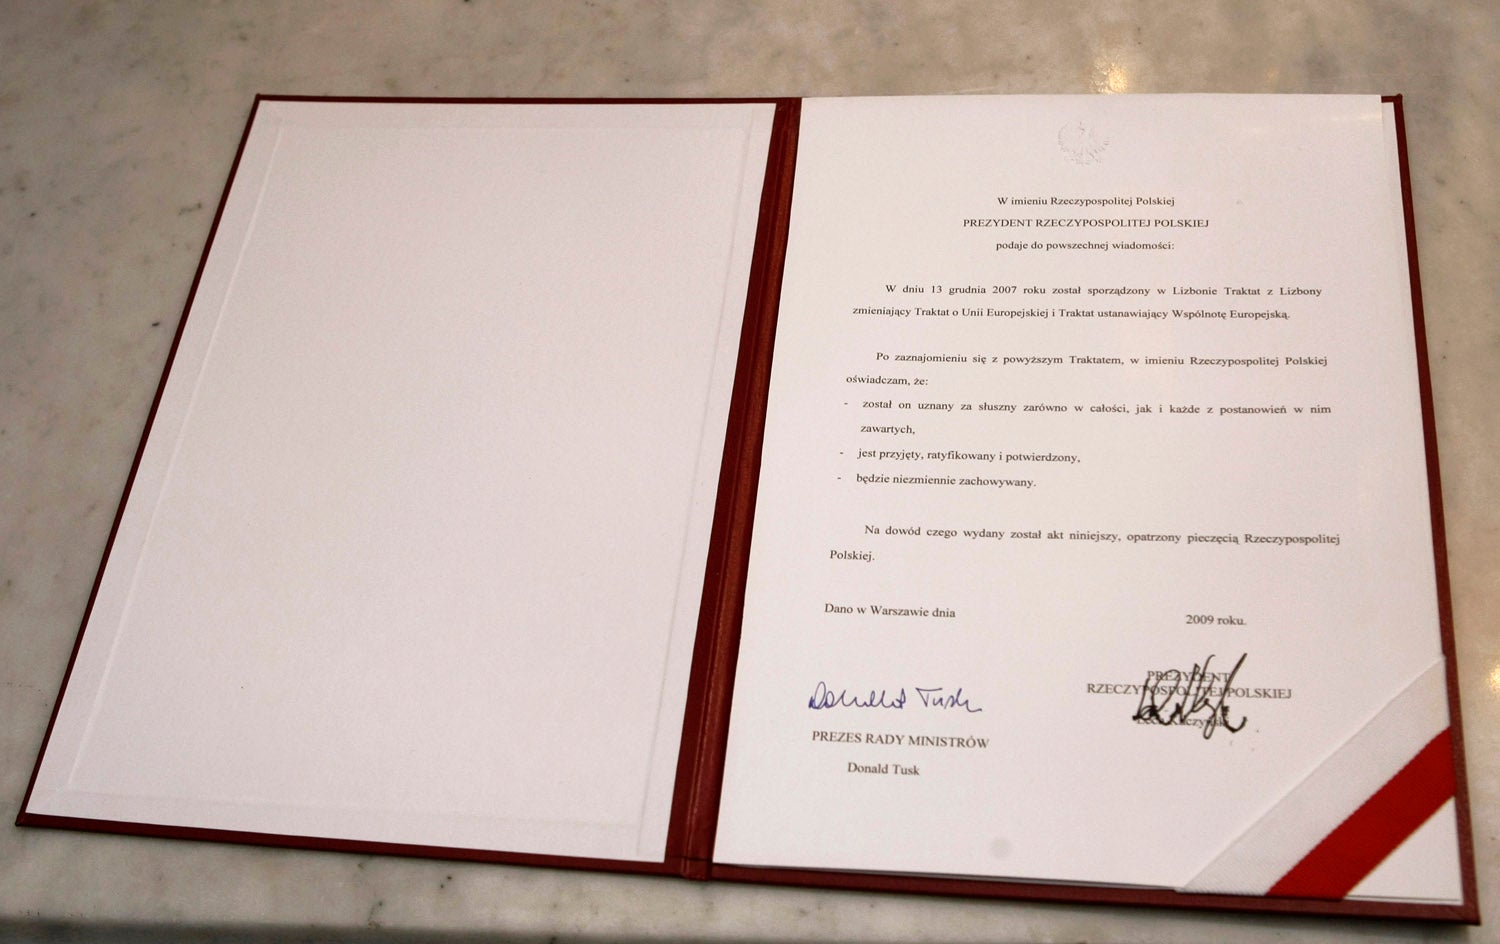 W imieniu Rzeczypospolitej Polskiej
PREZYDENT RZECZYPOSPOLITEJ POLSKIEJ
podaje do powszechnej wiadomości:
W dniu 13 grudnia 2007 roku został sporządzony w Lizbonie Traktat z Lizbony
zmieniający Traktat o Unii Europejskiej i Traktat ustanawiający Wspólnotę Europejską.
Po zaznajomieniu się z powyższym Traktatem, w imieniu Rzeczypospolitej Polskiej
oświadczam, że:
- został on uznany za słuszny zarówno w całości, jak i każde z postanowień w nim
zawartych,
- jest przyjęty, ratyfikowany i potwierdzony,
- będzie niezmiennie zachowywany.
Na dowód czego wydany został akt niniejszy, opatrzony pieczęcią Rzeczypospolitej
Polskiej.
Dano w Warszawie dnia 2009 roku.
PREZYDENT
RZECZYPOSPOLITEJ POLSKIEJ
Lech Kaczyński
Donald Tusk
PREZES RADY MINISTRÓW
Donald Tusk